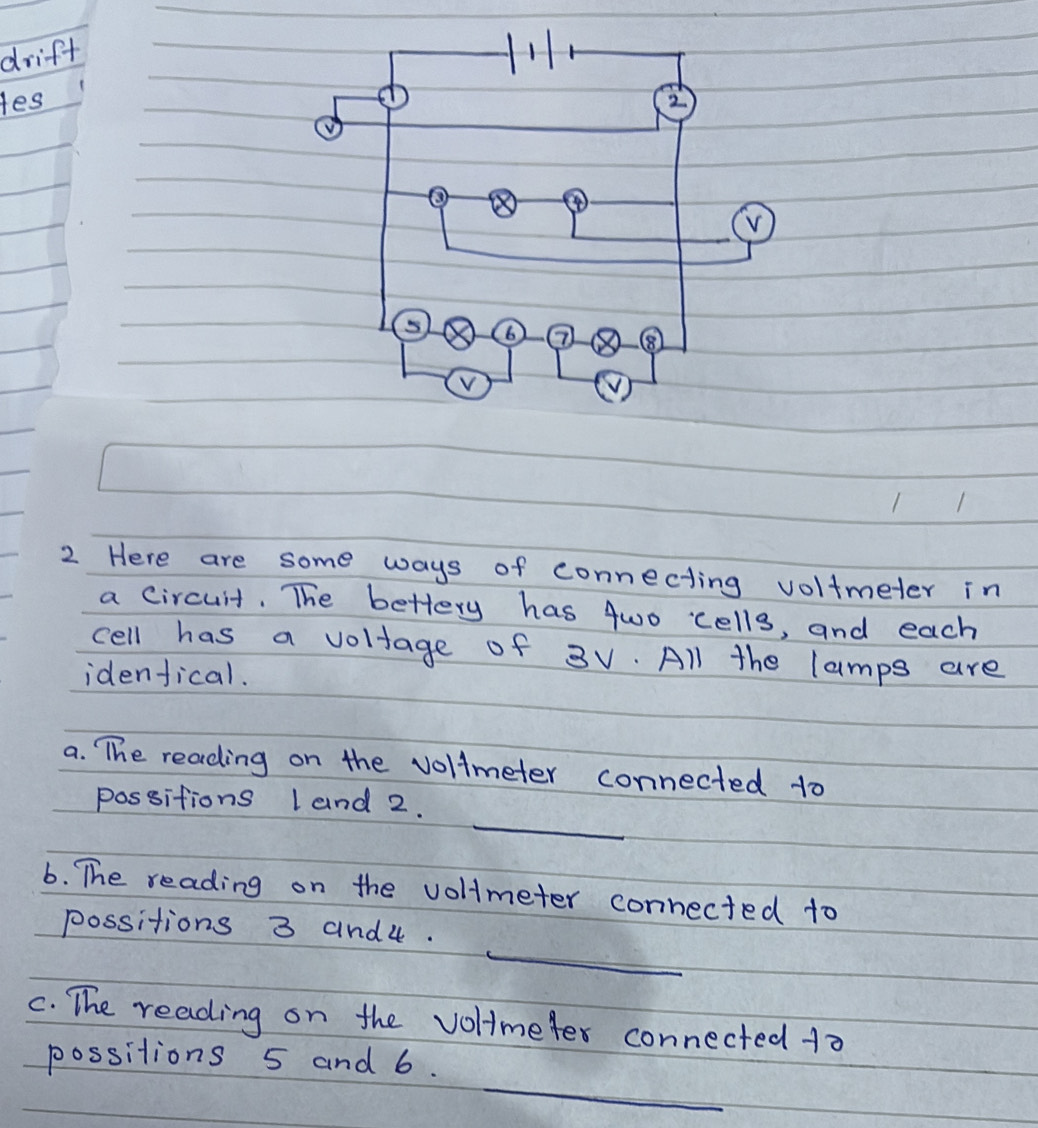 drift
tes
1
2
V
3
4
V
5
6
7
8
V
V
2 Here are some ways of connecting voltmeter in
a circuit. The bettery has two cells, and each
cell has a voltage of 3V. All the lamps are
identical.
a. The reading on the voltmeter connected to
possitions 1 and 2.
b. The reading on the voltmeter connected to
possitions 3 and 4.
c. The reading on the voltmeter connected to
possitions 5 and 6.